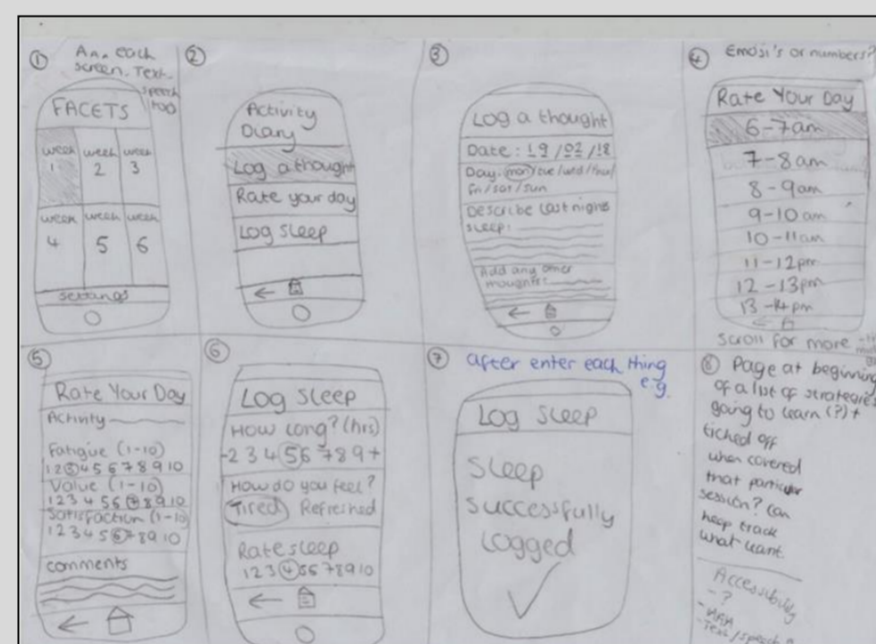 ①
An. each
screen. Text
speech
too
FACETS
week week week
1 2 3
week week week
4 5 6
settings
②
Activity
Diary
Log a thought
Rate your day
Log sleep
③
Log a thought
Date: 19/02/18
Day: mon/tue/wed/thu/
fri/sat/sun
Describe last nights
sleep:
Add any other
thoughts:
④ Emoji's or numbers?
Rate Your Day
6-7am
7-8am
8-9am
9-10am
10-11am
11-12pm
12-13pm
13-14pm
Scroll for more
⑤
Rate Your Day
Activity
Fatigue (1-10)
1 2 3 4 5 6 7 8 9 10
Value (1-10)
1 2 3 4 5 6 7 8 9 10
Satisfaction (1-10)
1 2 3 4 5 6 7 8 9 10
comments
⑥
Log sleep
How long? (hrs)
-2 3 4 5 6 7 8 9+
How do you feel?
Tired Refreshed
Rate sleep
1 2 3 4 5 6 7 8 9 10
⑦ after enter each thing
e.g.
Log sleep
Sleep
successfully
logged
⑧ Page at beginning
of a list of strategies
going to learn (?) +
ticked off
when covered
that particular
session? Can
keep track
what want.
Accessibility
- ?
- Text/speech